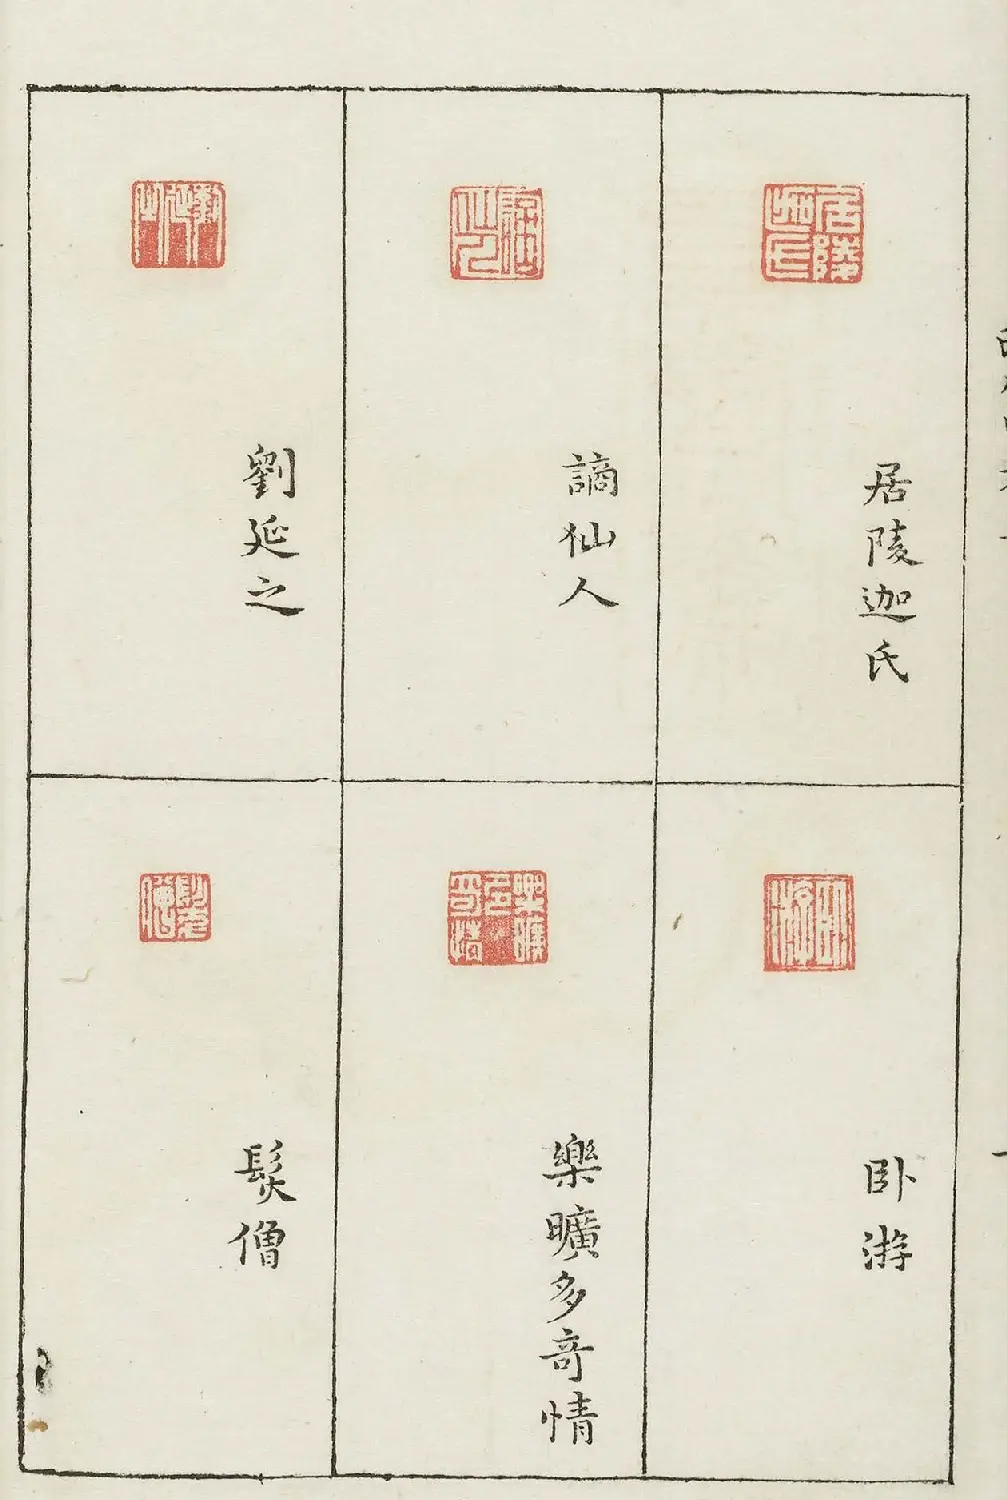 居陵迦氏
謫仙人
劉延之
卧游
樂曠多奇情
髡僧